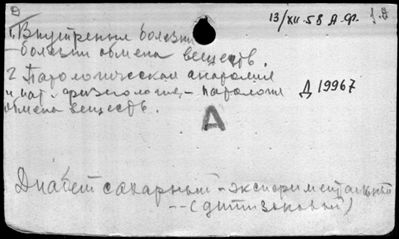 Д
13/XII.58 А.Ф.
1. Внутренние болезни
- болезни обмена веществ.
2 Патологическая анатомия
и пат. физиология, - патология
обмена веществ.
Д 19967
А
Диабет сахарный - экспериментальный
-- (дитизоновый)